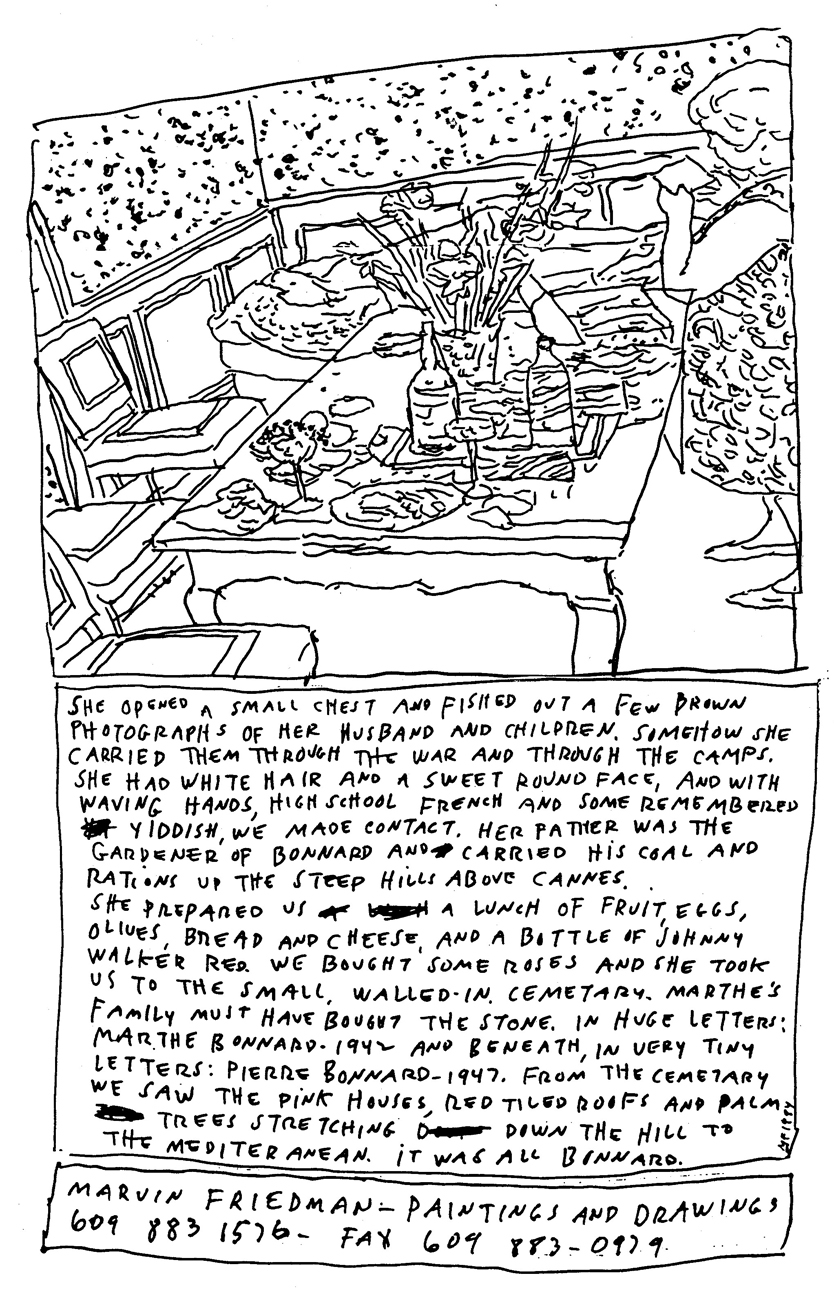 SHE OPENED A SMALL CHEST AND FISHED OUT A FEW BROWN
PHOTOGRAPHS OF HER HUSBAND AND CHILDREN. SOMEHOW SHE
CARRIED THEM THROUGH THE WAR AND THROUGH THE CAMPS.
SHE HAD WHITE HAIR AND A SWEET ROUND FACE, AND WITH
WAVING HANDS, HIGH SCHOOL FRENCH AND SOME REMEMBERED
YIDDISH, WE MADE CONTACT. HER FATHER WAS THE
GARDENER OF BONNARD AND CARRIED HIS COAL AND
RATIONS UP THE STEEP HILLS ABOVE CANNES.
SHE PREPARED US A LUNCH OF FRUIT, EGGS,
OLIVES, BREAD AND CHEESE, AND A BOTTLE OF JOHNNY
WALKER RED. WE BOUGHT SOME ROSES AND SHE TOOK
US TO THE SMALL, WALLED-IN CEMETARY. MARTHE'S
FAMILY MUST HAVE BOUGHT THE STONE. IN HUGE LETTERS:
MARTHE BONNARD-1942 AND BENEATH, IN VERY TINY
LETTERS: PIERRE BONNARD-1947. FROM THE CEMETARY
WE SAW THE PINK HOUSES, RED TILED ROOFS AND PALM
TREES STRETCHING DOWN THE HILL TO
THE MEDITERANEAN. IT WAS ALL BONNARD.
MARVIN FRIEDMAN - PAINTINGS AND DRAWINGS
609 883 1576 - FAX 609 883-0979